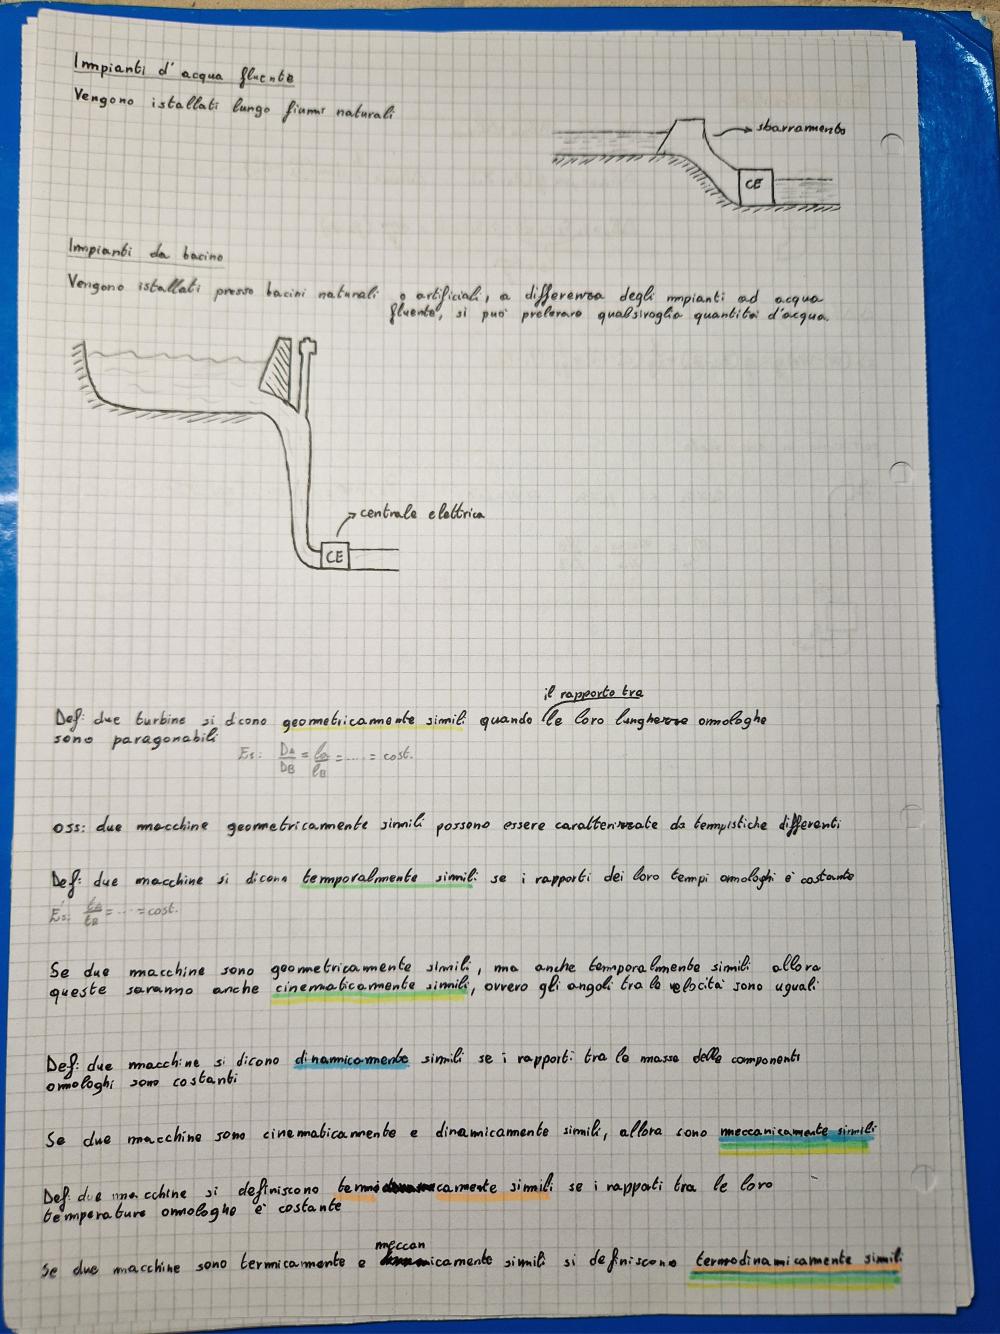 Impianti d'acqua fluente
Vengono istallati lungo fiumi naturali
sbarramento
CE
Impianti da bacino
Vengono istallati presso bacini naturali o artificiali, a differenza degli impianti ad acqua
fluente, si può prelevare qualsivoglia quantità d'acqua.
centrale elettrica
CE
il rapporto tra
Def: due turbine si dicono geometricamente simili quando le loro lunghezze omologhe
sono paragonabili
Es: DA/DB = la/lB = .... = cost.
oss: due macchine geometricamente simili possono essere caratterizzate da tempistiche differenti
Def: due macchine si dicono temporalmente simili se i rapporti dei loro tempi omologhi è costante
Es: tA/tB = ... = cost.
Se due macchine sono geometricamente simili, ma anche temporalmente simili allora
queste saranno anche cinematicamente simili, ovvero gli angoli tra le velocità sono uguali
Def: due macchine si dicono dinamicamente simili se i rapporti tra le masse delle componenti
omologhi sono costanti
Se due macchine sono cinematicamente e dinamicamente simili, allora sono meccanicamente simili
Def: due macchine si definiscono termicamente simili se i rapporti tra le loro
temperature omologhe è costante
meccan
Se due macchine sono termicamente e icamente simili si definiscono termodinamicamente simili